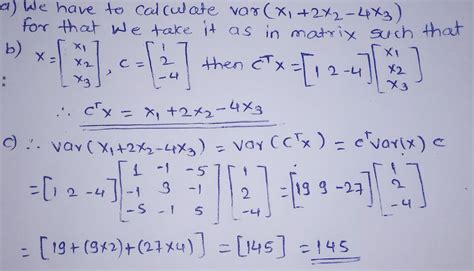 a) We have to calculate var(x1+2x2-4x3)
for that we take it as in matrix such that
b) x = [x1 x2 x3], c = [1 2 -4] then cᵀx = [1 2 -4] [x1 x2 x3]
∴ cᵀx = x1+2x2-4x3
c) ∴ var(x1+2x2-4x3) = var(cᵀx) = cᵀvar(x) c
= [1 2 -4] [1 -1 -5 -1 3 -1 -5 -1 5] [1 2 -4] = [19 9 -27] [1 2 -4]
= [19+(9x2)+(27x4)] = [145] = 145